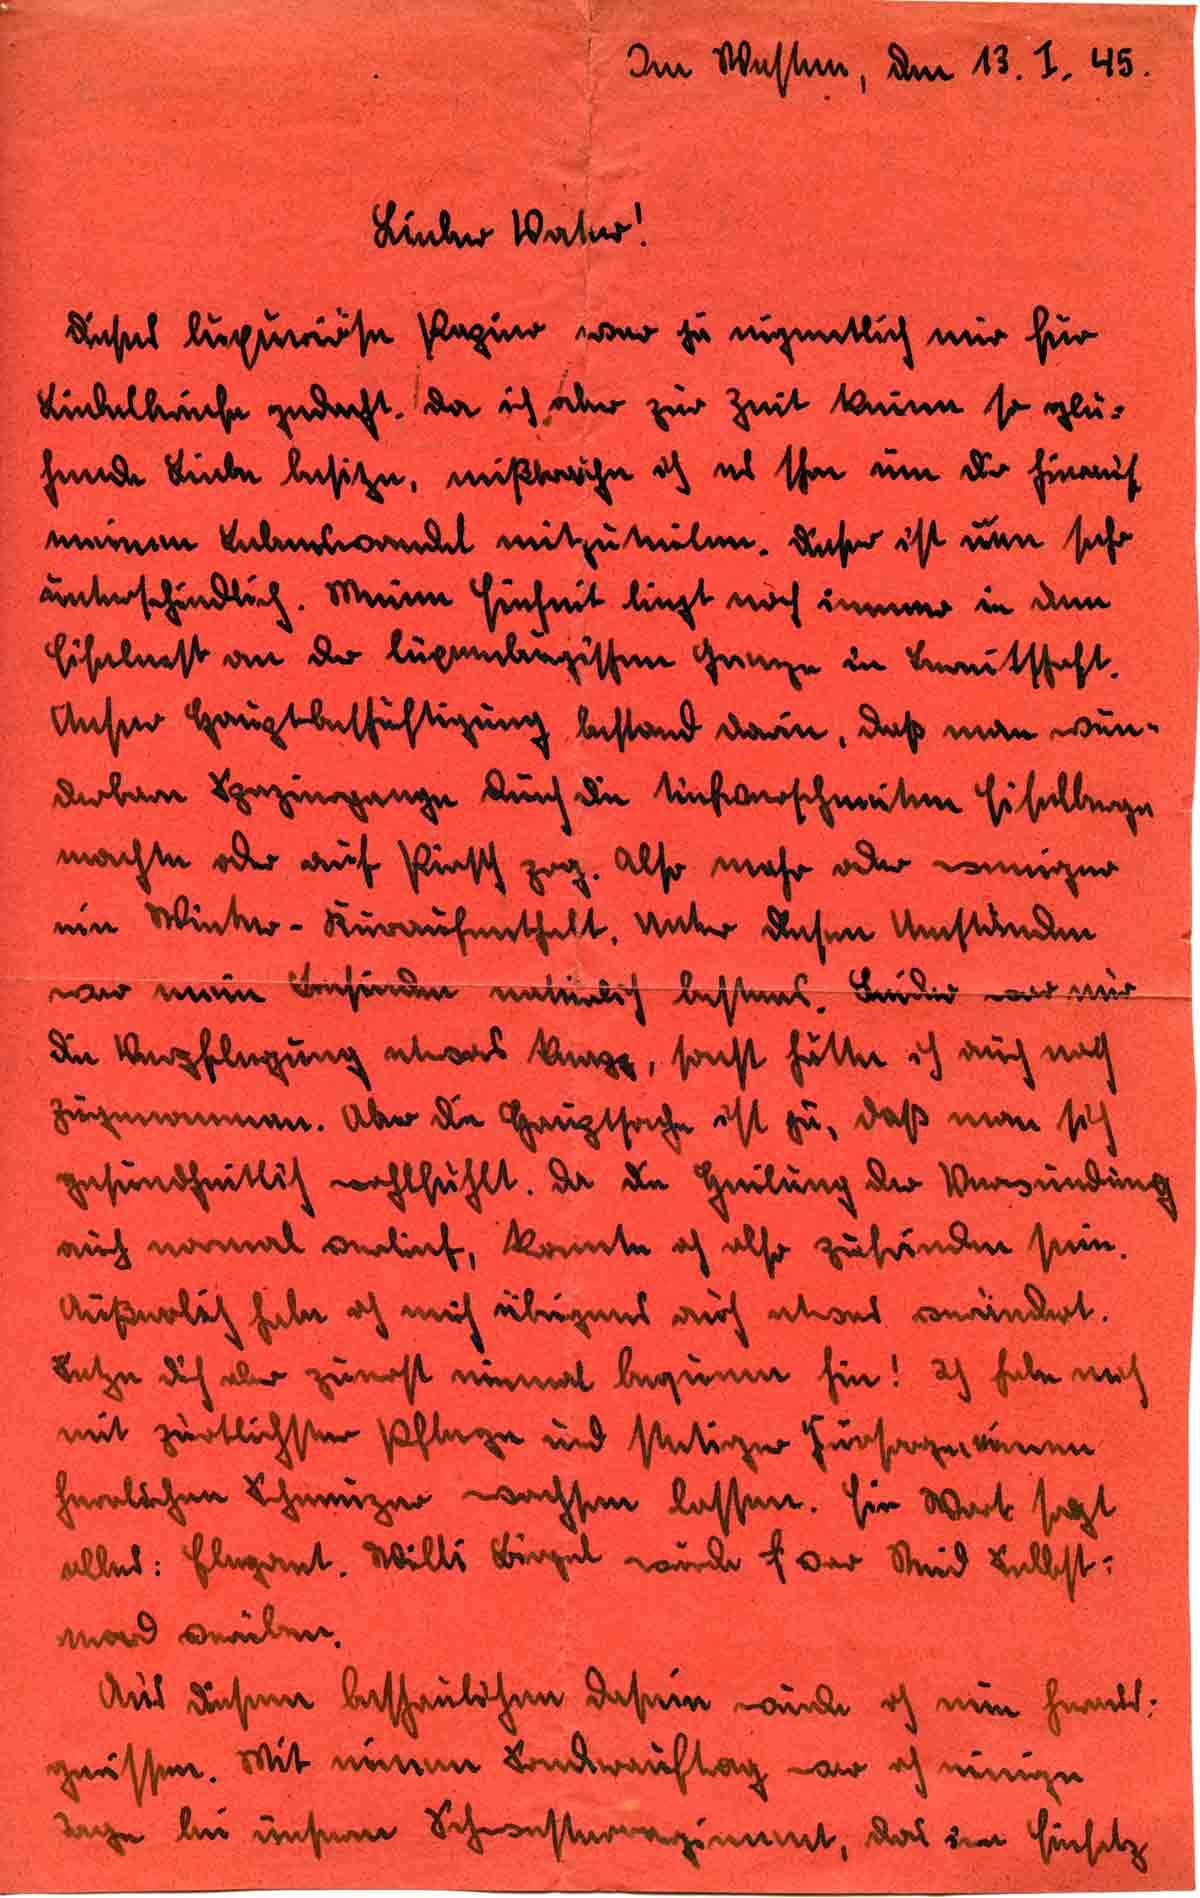 Im Westen, den 13. I. 45.
Lieber Vater!
Dieses luxuriöse Papier war ja eigentlich nur für
Liebesbriefe gedacht. Da ich aber zur Zeit keine so glü-
hende Liebe besitze, mißbrauche ich es schon um Dir hierauf
meinen Lebenswandel mitzuteilen. Dieser ist nun sehr
unterschiedlich. Meine Einheit liegt noch immer in dem
Eifelnest an der luxemburgischen Grenze in Bereitschaft.
Unsere Hauptbeschäftigung bestand darin, daß man wun-
derbare Spaziergänge durch die tiefverschneiten Eifelberge
machte oder auf Pirsch zog. Also mehr oder weniger
ein Winter-Kuraufenthalt. Unter diesen Umständen
war mein Befinden natürlich bestens. Leider war nur
die Verpflegung etwas knapp, sonst hätte ich auch noch
zugenommen. Aber die Hauptsache ist ja, daß man sich
gesundheitlich wohlfühlt. Da die Heilung der Verwundung
auch normal verlief, konnte ich also zufrieden sein.
Äußerlich habe ich mich übrigens auch etwas verändert.
Setze dich aber zuerst einmal bequem hin! Ich habe mir
mit zärtlichster Pflege und stetiger Fürsorge, einen
herrlichen Schnauzer wachsen lassen. Ein Wort sagt
alles: Elegant. Willi Birgel würde vor Neid Selbst-
mord verüben.
Aus diesem beschaulichen Dasein wurde ich nun heraus-
gerissen. Mit einem Sonderauftrag war ich einige
Tage bei unserem Schwesterregiment, das im Einsatz